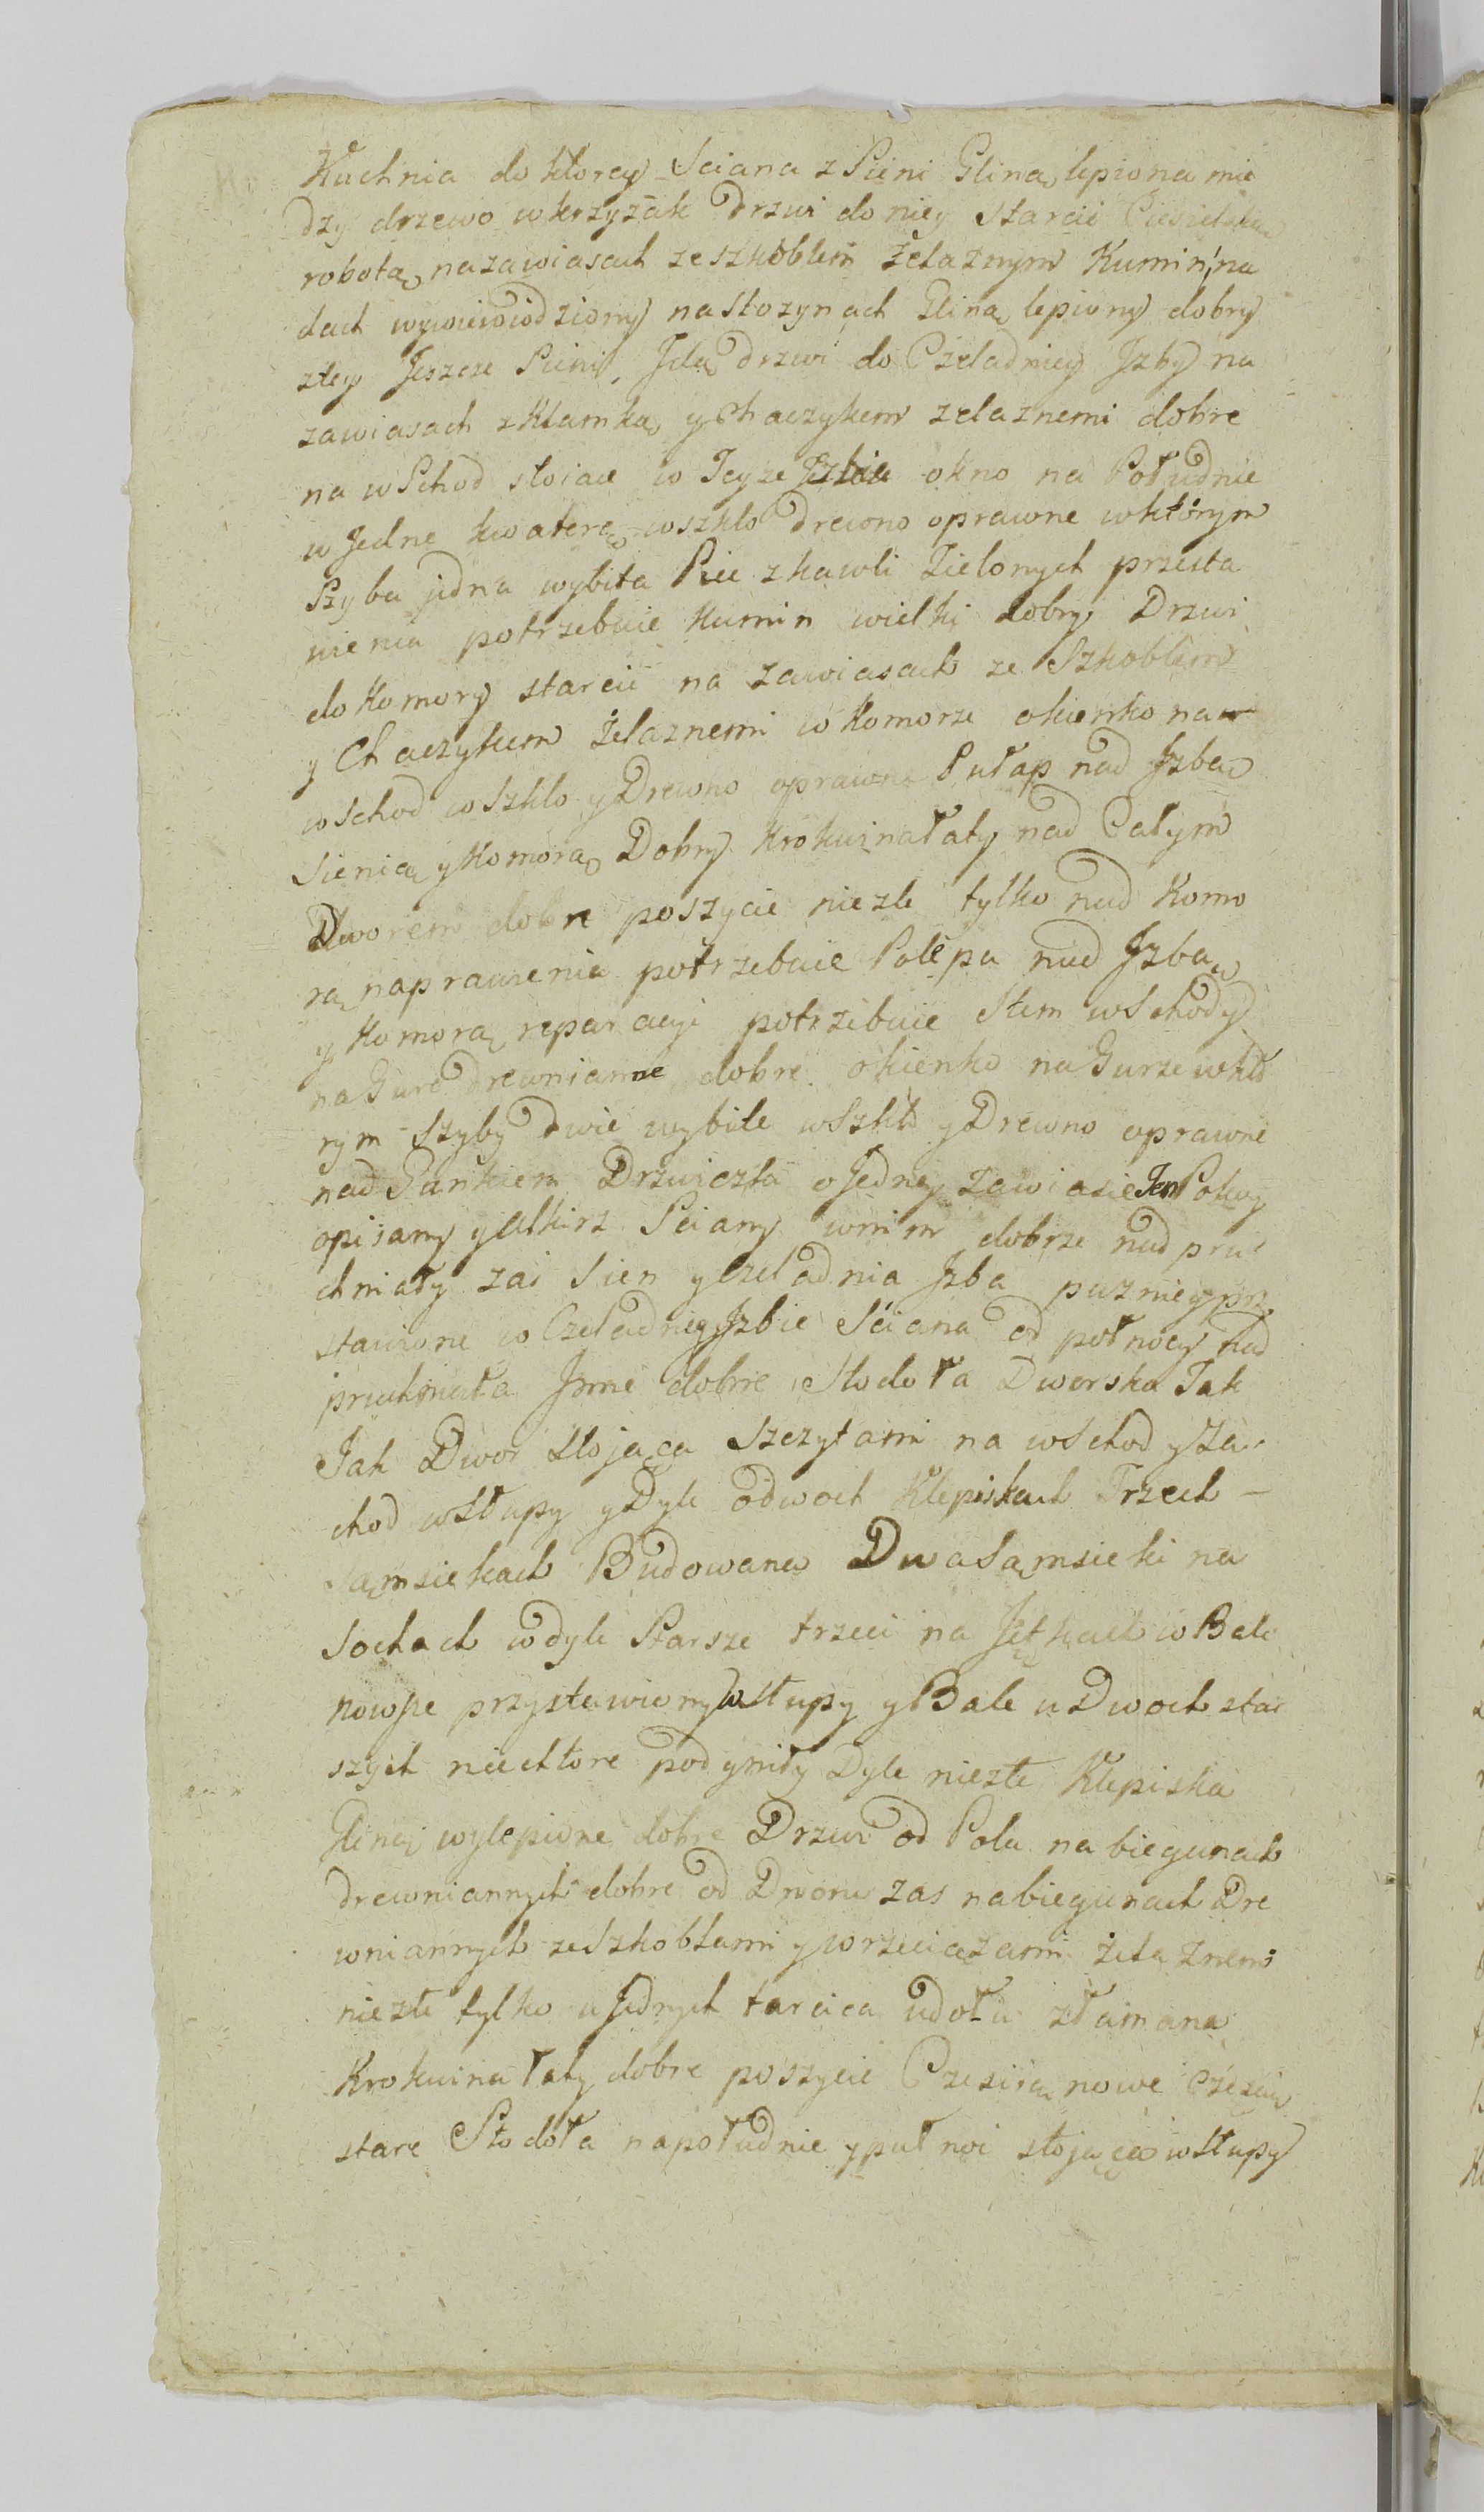 Kuchnia do ktorey Sciana z Sieni Glina lepiona mie
dzy drzewo w krzyżak drzwi do niey starcic Ciesielską
robotą na zawiasach ze szkoblem żelaznym Kumin na
dach wywiedziony na stozynach Gliną lepiony dobry
z tey Jeszcze Sieni Idą drzwi do Czeladniey Jzby na
zawiasach z Klamką y Chaczykiem zelaznemi dobre
na wschod stoiace w Teyze Jzbie okno na Południe
w Jedne kwaterę w szkło drewno oprawne w którym
Szyba jedna wybita Piec z kawli Zielonych przesta
wienia potrzebuie Kumin wielki dobry Drzwi
do Komory starcic na Zawiasach ze Szkoblem
y Chaczykiem żelaznemi w Komorze okienko na
wschod w Szkło y Drewno oprawne Pułap nad Jzbą
Sienią y Komorą Dobry Krokwi na łaty nad Całym
Dworem dobre poszycie niezle tylko nad Komo
rą naprawienia potrzebuie Polepa nad Jzbą
y Komorą reparacyi potrzebuie Stem wschody
na Gure drewnianne dobre okienko na Gurze w któ
rym Szyby dwie wybite w Szkło y Drewno oprawne
nad Gankiem Drzwiczki o Jedney Zawiasie Ten Pokoy
opisany y Alkierz Sciany w nim dobrze nad pru
chniały zaś Sien y Czeladnia Jzba pozniey prz
stawione w Czeladniey Jzbie Sciana od połnocy nad
pruchniała Jnne dobre Stodoła Dworska Tak
Jak Dwor Stojąca Szczytami na wschod y Za
chod w Słupy y Dyle o dwoch Klepiskach Trzech –
Sąmsiekach Budowana Dwa Sąmsieki na
Sochach w dyle Starsze trzeci na Jętkach w Bale
nowe przystawiony w Słupy y Bale u Dwoch star
szych niecktore podgniły Dyle niezłe Klepiska
Gliną wylepione dobre Drzwi od Pola na biegunach
drewniannych dobre od Dworu zas na biegunach Dre
wniannych ze Szkoblami y wrzeciążami żelaznemi
niezłe tylko u Jednych tarcica u dołu złamana
Krokwi na łaty dobre poszycie Czescią nowe Czescią
stare Stodoła na południe y pułnoc stojąca w Słupy